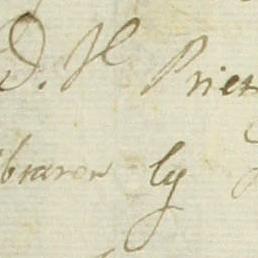 D. H Pries
ibraron ly